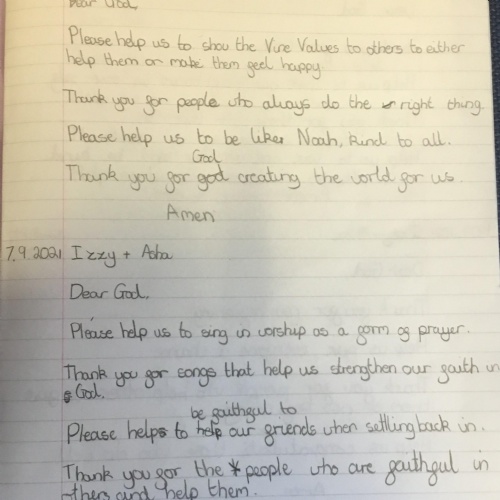 Dear God,
Please help us to show the Vine Values to others to either
help them or make them feel happy.
Thank you for people who always do the right thing.
Please help us to be like Noah, kind to all.
God
Thank you for god creating the world for us.
Amen
7.9.2021 Izzy + Asha
Dear God,
Please help us to sing in worship as a form of prayer.
Thank you for songs that help us strengthen our faith in
God.
be faithful to
Please help to help our friends when settling back in.
Thank you for the people who are faithful in
others and help them.